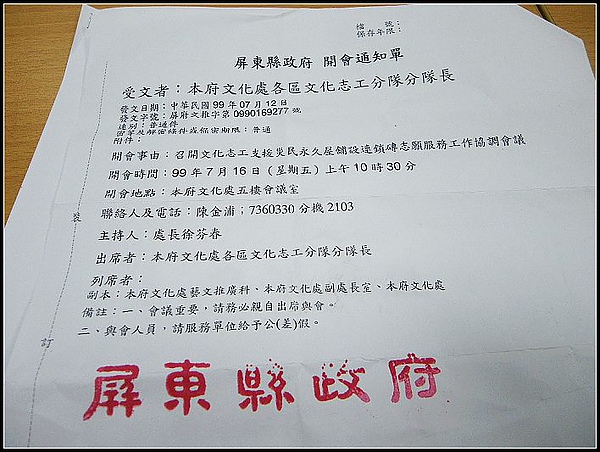 檔　　號：
保存年限：
屏東縣政府 開會通知單
受文者：本府文化處各區文化志工分隊分隊長
發文日期：中華民國 99 年 07 月 12 日
發文字號：屏府文推字第 0990169277 號
速別：普通件
密等及解密條件或保密期限：普通
附件：
開會事由：召開文化志工支援災民永久屋舖設連鎖磚志願服務工作協調會議
開會時間：99 年 7 月 16 日（星期五）上午 10 時 30 分
開會地點：本府文化處五樓會議室
聯絡人及電話：陳金浦；7360330 分機 2103
主持人：處長徐芬春
出席者：本府文化處各區文化志工分隊分隊長
列席者：
副本：本府文化處藝文推廣科、本府文化處副處長室、本府文化處
備註：一、會議重要，請務必親自出席與會。
二、與會人員，請服務單位給予公(差)假。
裝
訂
屏東縣政府